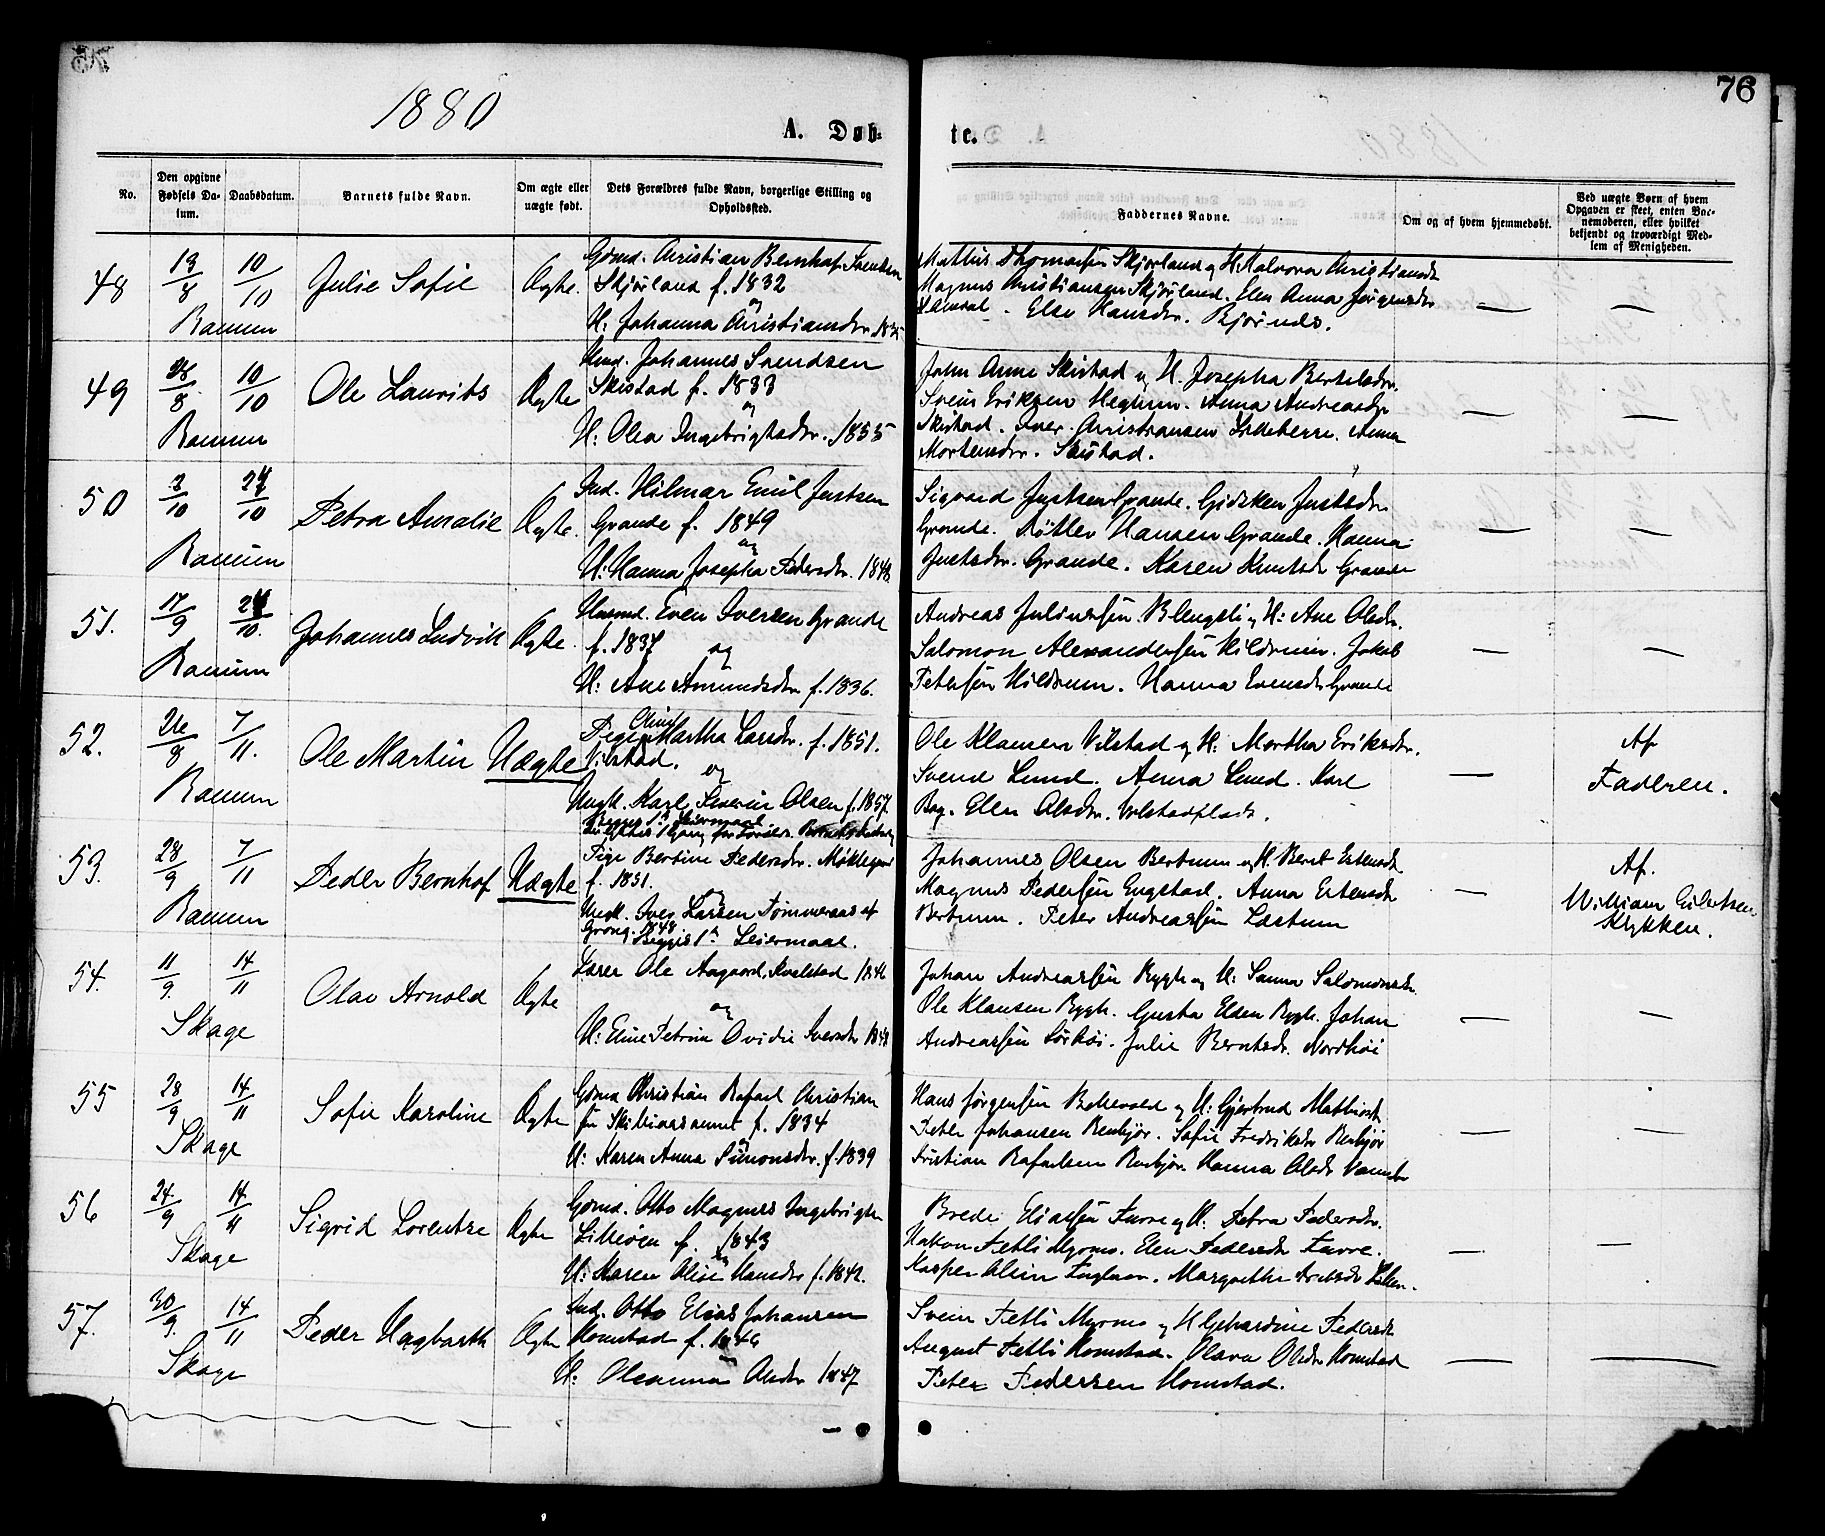 76
1880
A. Døb- te.
No.
Den opgivne Fødsels Da- tum.
Daabsdatum.
Barnets fulde Navn.
Om ægte eller uægte født.
Dets Forældres fulde Navn, borgerlige Stilling og Opholdssted.
Faddernes Navne.
Om og af hvem hjemmedøbt.
Ved uægte Børn af hvem Opgaven er skeet, enten Bar- nemoderen, eller hvilket bekjendt og troværdigt Med- lem af Menigheden.
48 13/8 10/10 Julie Sofie Ægte.
Ranum
Gdmd. Christian Bernhof Svendsen
Skjørland f. 1832
og
H. Johanna Christiansdr.
Mathis Thomassen Skjørland og H. Halvora Christiansdr
Magnus Christiansen Skjørland. Elen Anna Jørgensdr
Elsv Hansdr. Bjørnes. — —
49 10/10 Ole Laurits Ægte
Ranum
Johannes Svendsen
Skistad f. 1833
og
H. Olea Ingebrigtsdr. 1835
John Arne Skistad og H. Josepha Bertelsdr.
Svein Eriksen Meglum. Anna Andreasdr
Skistad. Iver Christiansen Lideberre. Anna
Mortensdr. Skistad. — —
50 2/10 24/10 Petra Amalie Ægte.
Ranum
Ind. Hilmar Emil Justsen
Grande f. 1849
og
H. Hanna Josepha Pedersdr. 1848
Sigvard Justsen Grande. Gidsken Justsdr
Grande. Hansen Grande. Hanna
Justsdr. Grande. Karen Knutsdr Grande — —
51. 17/9 24/10. Johannes Ludvik Ægte.
Ranum
Husmd. Even Iversen Grande
f. 1837 og
H. Ane Amundsdr f. 1836.
Andreas Julinussen Blengsli og H: Ane Olsdr.
Salomon Alexandersen Hildrum. Jakob
Petersen Hildrum. Hanna Evensdr Grande — —
52. 26/8 7/11. Ole Martin Uægte
Ranum
Pigen Martha Larsdr. f. 1851.
Vilstad. og
Ungk. Karl Severin Olsen f. 1857.
Begges 1ste Leiermaal
Ole Klausen Vilstad og H. Martha Eriksdr.
Svend Lund. Anna Lund. Karl
Elen Olsdr. Velstadplads. —
Af
Faderen.
53. 28/9 7/11 Peder Bernhof Uægte
Ranum
Pige Bertine Pedersdr. Møklegaard
f. 1851.
og
Ungk. Iver Larsen Tømmeraas af
Grong. 1848
Begges 1ste Leiermaal.
Johannes Olsen Bertnum og H. Berit Estensdr
Magnus Pedersen Engstad. Anna Estensdr
Bertnum. Peter Andreassen Læstum —
Af.
William Gilertsen
Klykken.
54. 11/9. 14/11 Olav Arnold Ægte
Skage
Lærer Ole Aagaard, Kvelstad
og
H. Eline Petrine Ovidie Iversdr
Johan Andreassen Rygh og H: Sanna Salomonsdr.
Ole Klausen Rygh. Gusta Elden Rygh. Johan
Andreassen Sørhøi. Julie Berntsdr. Nordhøi — —
55 28/9 14/11 Sofie Karoline Ægte
Skage
Gdmd Christian Rafael Christian
sen Skilliaasaunet f. 1834
og
H. Karen Anna Simonsdr. f. 1839
Hans Jørgensen Bakkevold og H: Gjertrud Mathisdr
Peter Johansen Renbjør. Sofie Fredriksdr Renbjør
Kristian Rafaelsen Renbjør. Hanna Olsdr — —
56 24/9 14/11 Sigrid Lorentze Ægte
Skage
Gdmd. Otto Magnus Ingebrigtsen
Lilleøen f. 1843
og
H. Karen Olise Hansdr f. 1842.
Brede Eliassen Fuvre og H. Petra Pedersdr.
Hakon Petli Myrmo. Elen Pedersdr Fuvre.
Kasper Margrethe — —
57. 30/9. 14/11 Peder Hagbarth Ægte
Skage
Ind. Otto Elias Johansen
Homstad f. 1846
H. Oleanna Andr 1847
Svein Petli Myrmo og H. Gjehardine Pedersdr
August Petli Homstad. Olava Olsdr Homstad
Peter Pedersen Homstad. — —